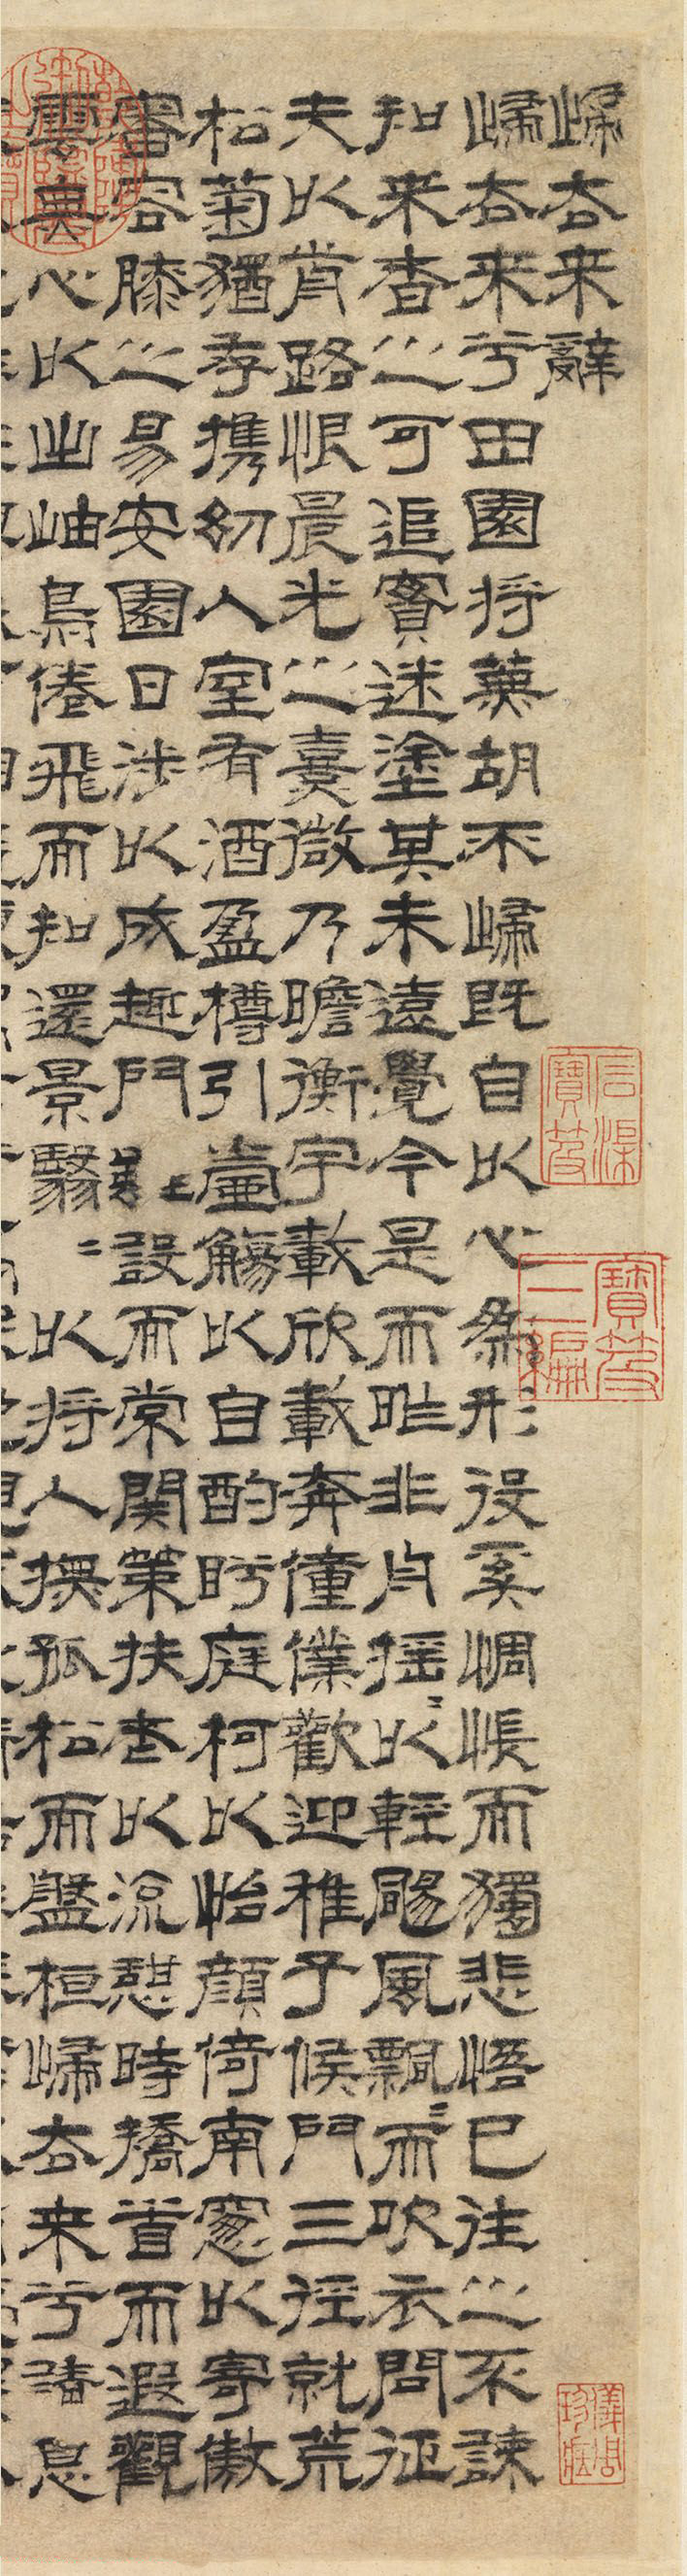 歸去来辭
歸去来兮田園将蕪胡不歸既自以心為形役奚惆悵而獨悲悟已往之不諫
知来者之可追實迷塗其未遠覺今是而昨非舟摇〻以輕颺風飄〻而吹衣問征
夫以前路恨晨光之熹微乃瞻衡宇載欣載奔僮僕歡迎稚子候門三徑就荒
松菊猶存携幼入室有酒盈樽引壺觴以自酌眄庭柯以怡顔倚南窓以寄傲
審容膝之易安園日涉以成趣門雖設而常関策扶老以流憩時矯首而遐觀
雲無心以出岫鳥倦飛而知還景翳〻以将入撫孤松而盤桓歸去来兮請息
石渠寶笈
寶笈三編
儀周珍藏